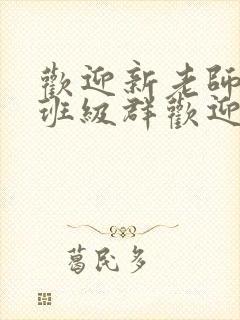 歡迎新老師
班級群歡迎
葛民多